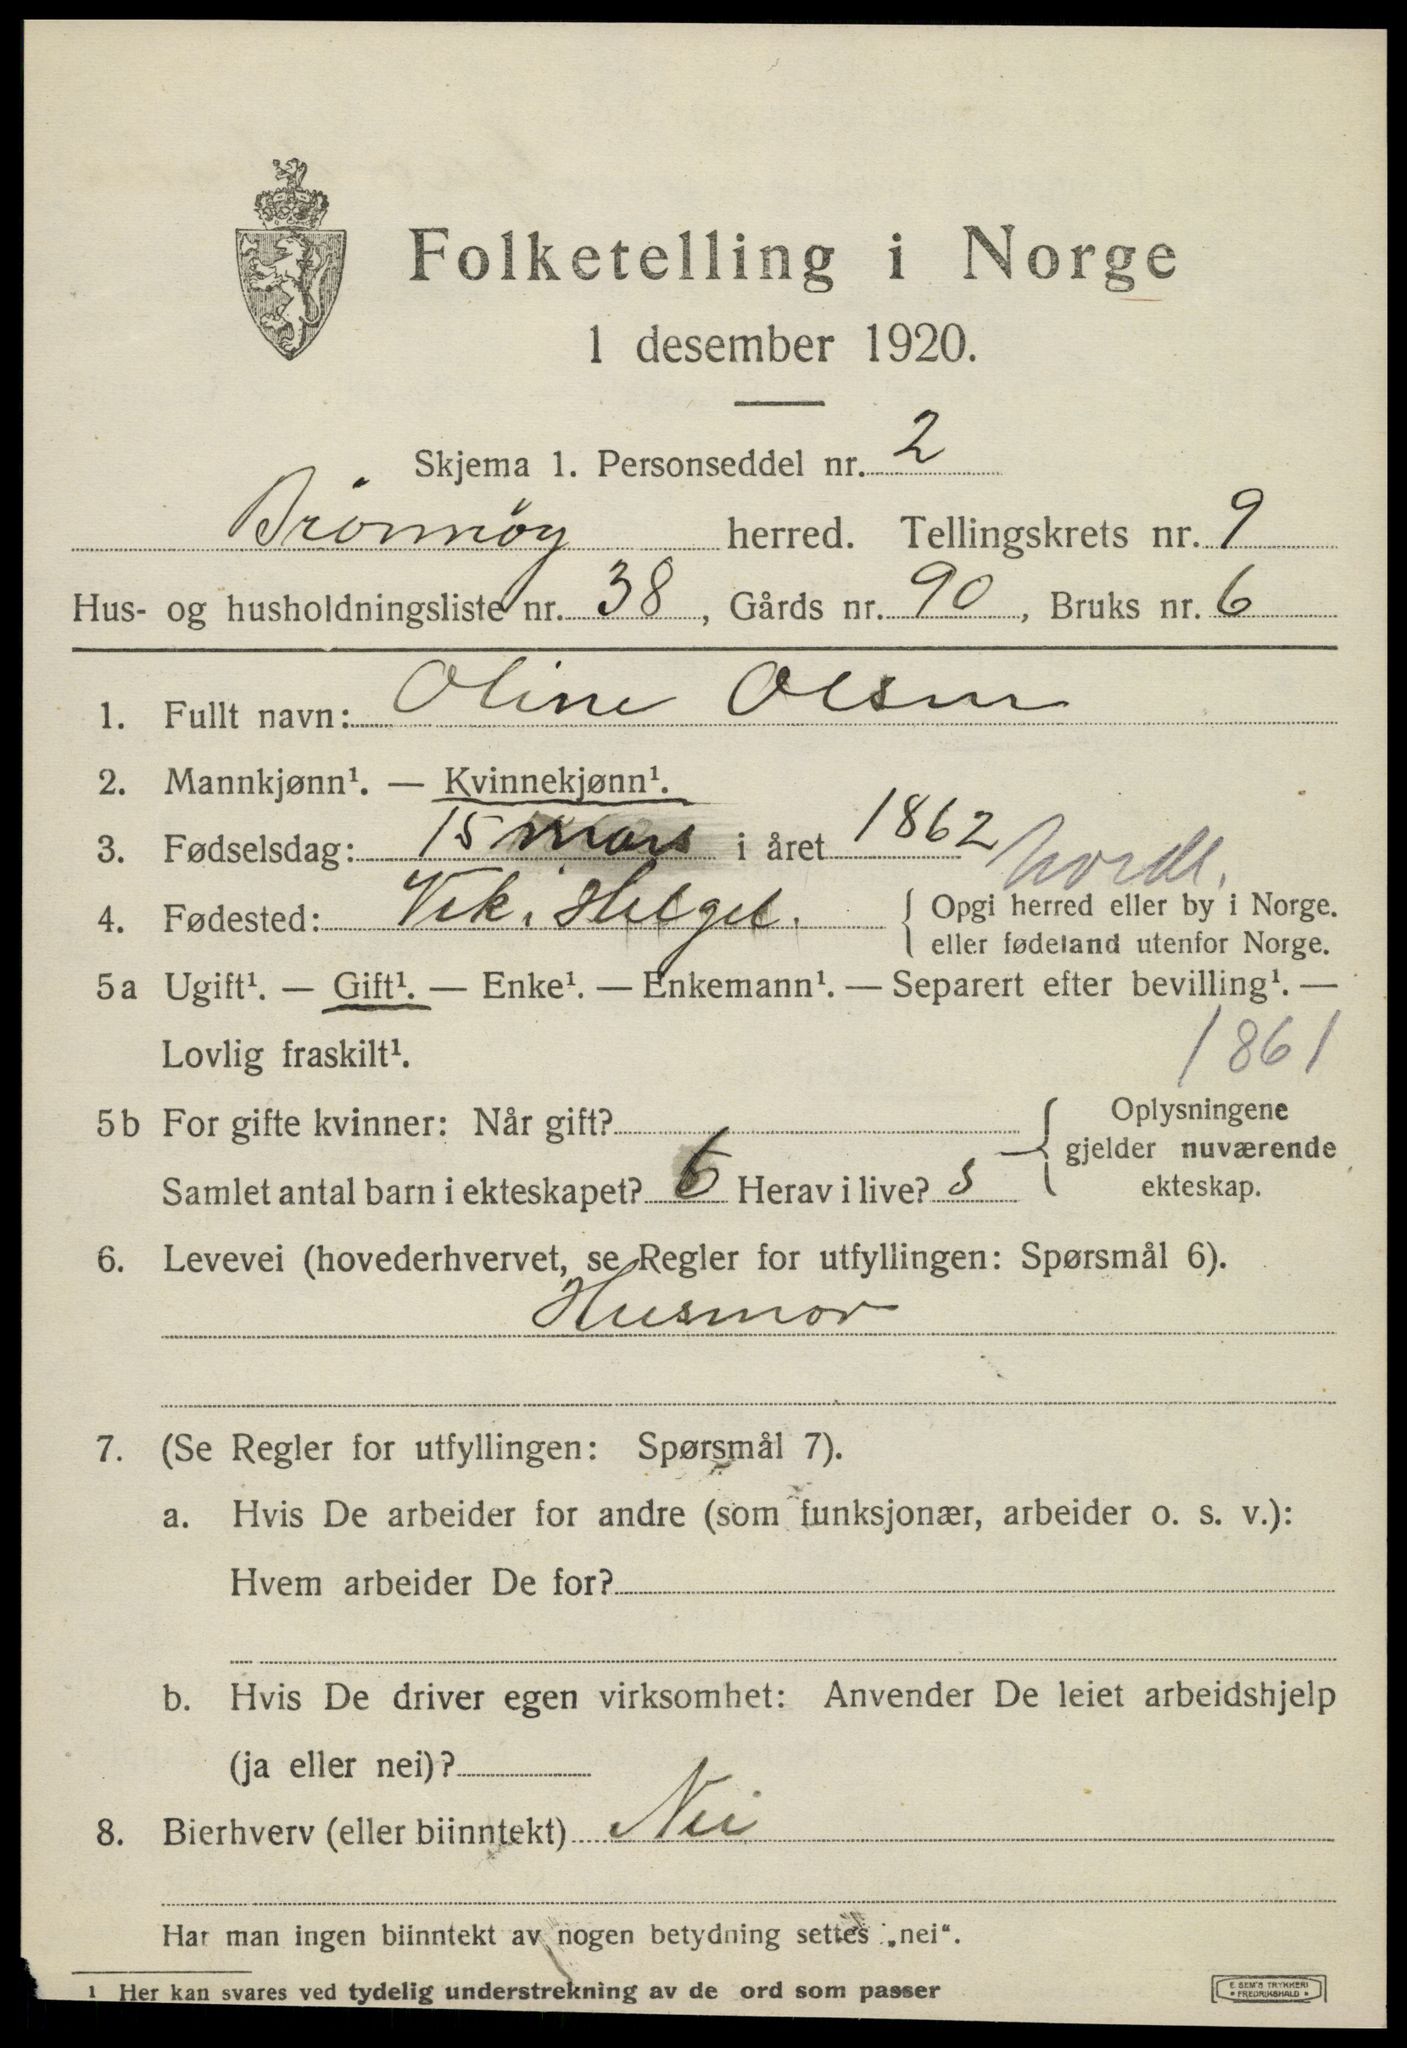 Folketelling i Norge
1 desember 1920.
Skjema 1. Personseddel nr. 2
Brönnöy herred. Tellingskrets nr. 9
Hus- og husholdningsliste nr. 38, Gårds nr. 90, Bruks nr. 6
1. Fullt navn: Oline Olsen
2. Mannkjønn¹. — Kvinnekjønn¹.
3. Fødselsdag: 15 mars i året 1862
Nordl.
4. Fødested: Vik i Helgel. { Opgi herred eller by i Norge.
eller fødeland utenfor Norge.
5a Ugift¹. — Gift¹. — Enke¹. — Enkemann¹. — Separert efter bevilling¹. —
Lovlig fraskilt¹. 1861
5b For gifte kvinner: Når gift? { Oplysningene
gjelder nuværende
ekteskap.
Samlet antal barn i ekteskapet? 6 Herav i live? 5
6. Levevei (hovederhvervet, se Regler for utfyllingen: Spørsmål 6).
Husmor
7. (Se Regler for utfyllingen: Spørsmål 7).
a. Hvis De arbeider for andre (som funksjonær, arbeider o. s. v.):
Hvem arbeider De for?
b. Hvis De driver egen virksomhet: Anvender De leiet arbeidshjelp
(ja eller nei)?
8. Bierhverv (eller biinntekt) Nei
Har man ingen biinntekt av nogen betydning settes „nei“.
¹ Her kan svares ved tydelig understrekning av de ord som passer
E SEM'S TRYKKERI
• FREDRIKSHALD •